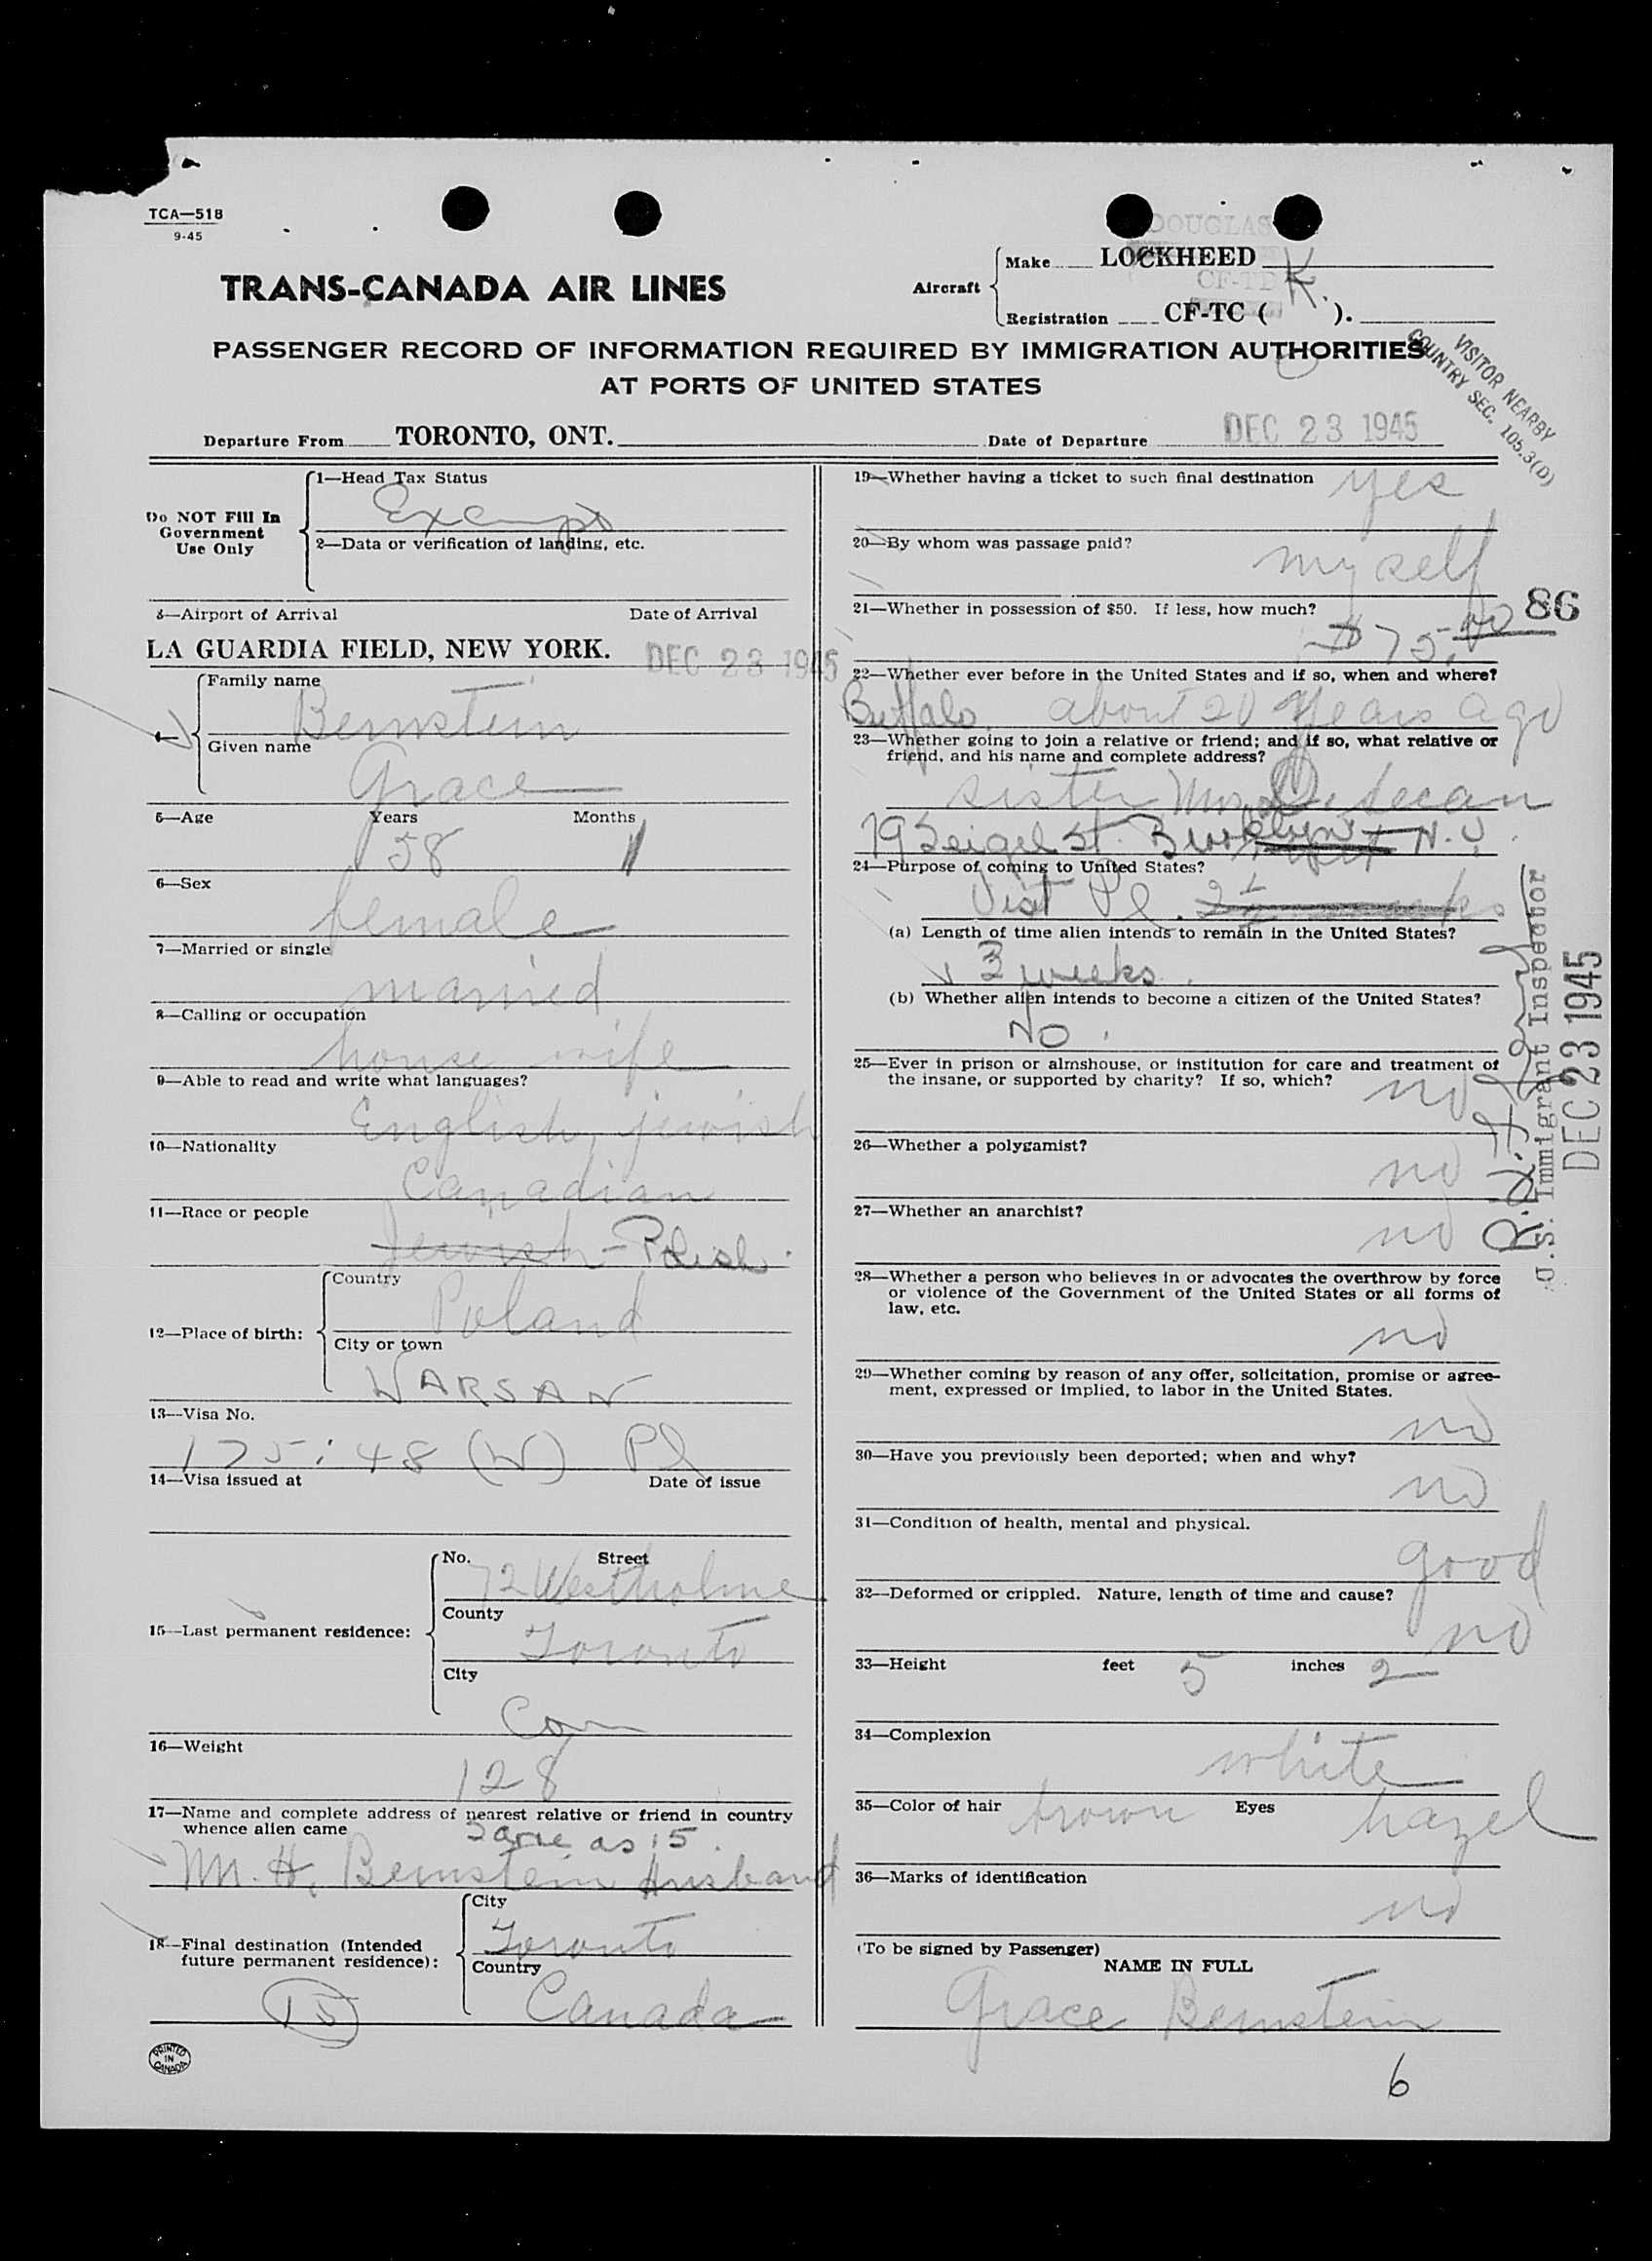 TCA—518
9-45
DOUGLAS
TRANS-CANADA AIR LINES
Aircraft
Make LOCKHEED
CF-TD K.
Registration CF-TC ( ).
PASSENGER RECORD OF INFORMATION REQUIRED BY IMMIGRATION AUTHORITIES
AT PORTS OF UNITED STATES
VISITOR NEARBY
COUNTRY SEC. 105.3(D)
Departure From TORONTO, ONT. Date of Departure DEC 23 1945
Do NOT Fill In
Government
Use Only
1—Head Tax Status
Exempt
2—Data or verification of landing, etc.
3—Airport of Arrival Date of Arrival
LA GUARDIA FIELD, NEW YORK. DEC 23 1945
4—
Family name
Bernstein
Given name
Grace
5—Age Years Months
58
6—Sex
female
7—Married or single
married
8—Calling or occupation
house wife
9—Able to read and write what languages?
English, jewish
10—Nationality
Canadian
11—Race or people
Jewish - Polish.
12—Place of birth:
Country
Poland
City or town
WARSAW
13—Visa No.
175:48 (W) Pl
14—Visa issued at Date of issue
15—Last permanent residence:
No. Street
72 Westholme
County
Toronto
City
Can
16—Weight
128
17—Name and complete address of nearest relative or friend in country
whence alien came
Same as 15.
M. H. Bernstein Husband
18—Final destination (Intended
future permanent residence):
City
Toronto
Country
Canada
15
PRINTED
IN
CANADA
19—Whether having a ticket to such final destination yes
20—By whom was passage paid?
my self
21—Whether in possession of $50. If less, how much?
$75.00
86
22—Whether ever before in the United States and if so, when and where?
Buffalo about 20 years ago
23—Whether going to join a relative or friend; and if so, what relative or
friend, and his name and complete address?
sister Mrs. Secan
79 Seigel St. Brooklyn N.Y.
24—Purpose of coming to United States?
Visit Pl. 2½ weeks
(a) Length of time alien intends to remain in the United States?
3 weeks.
(b) Whether alien intends to become a citizen of the United States?
No.
25—Ever in prison or almshouse, or institution for care and treatment of
the insane, or supported by charity? If so, which?
no
26—Whether a polygamist?
no
27—Whether an anarchist?
no
28—Whether a person who believes in or advocates the overthrow by force
or violence of the Government of the United States or all forms of
law, etc.
no
29—Whether coming by reason of any offer, solicitation, promise or agree-
ment, expressed or implied, to labor in the United States.
no
30—Have you previously been deported; when and why?
no
31—Condition of health, mental and physical.
good
32—Deformed or crippled. Nature, length of time and cause?
no
33—Height feet 5 inches 2
34—Complexion
white
35—Color of hair brown Eyes hazel
36—Marks of identification
no
(To be signed by Passenger)
NAME IN FULL
Grace Bernstein
6
U.S. Immigrant Inspector
DEC 23 1945